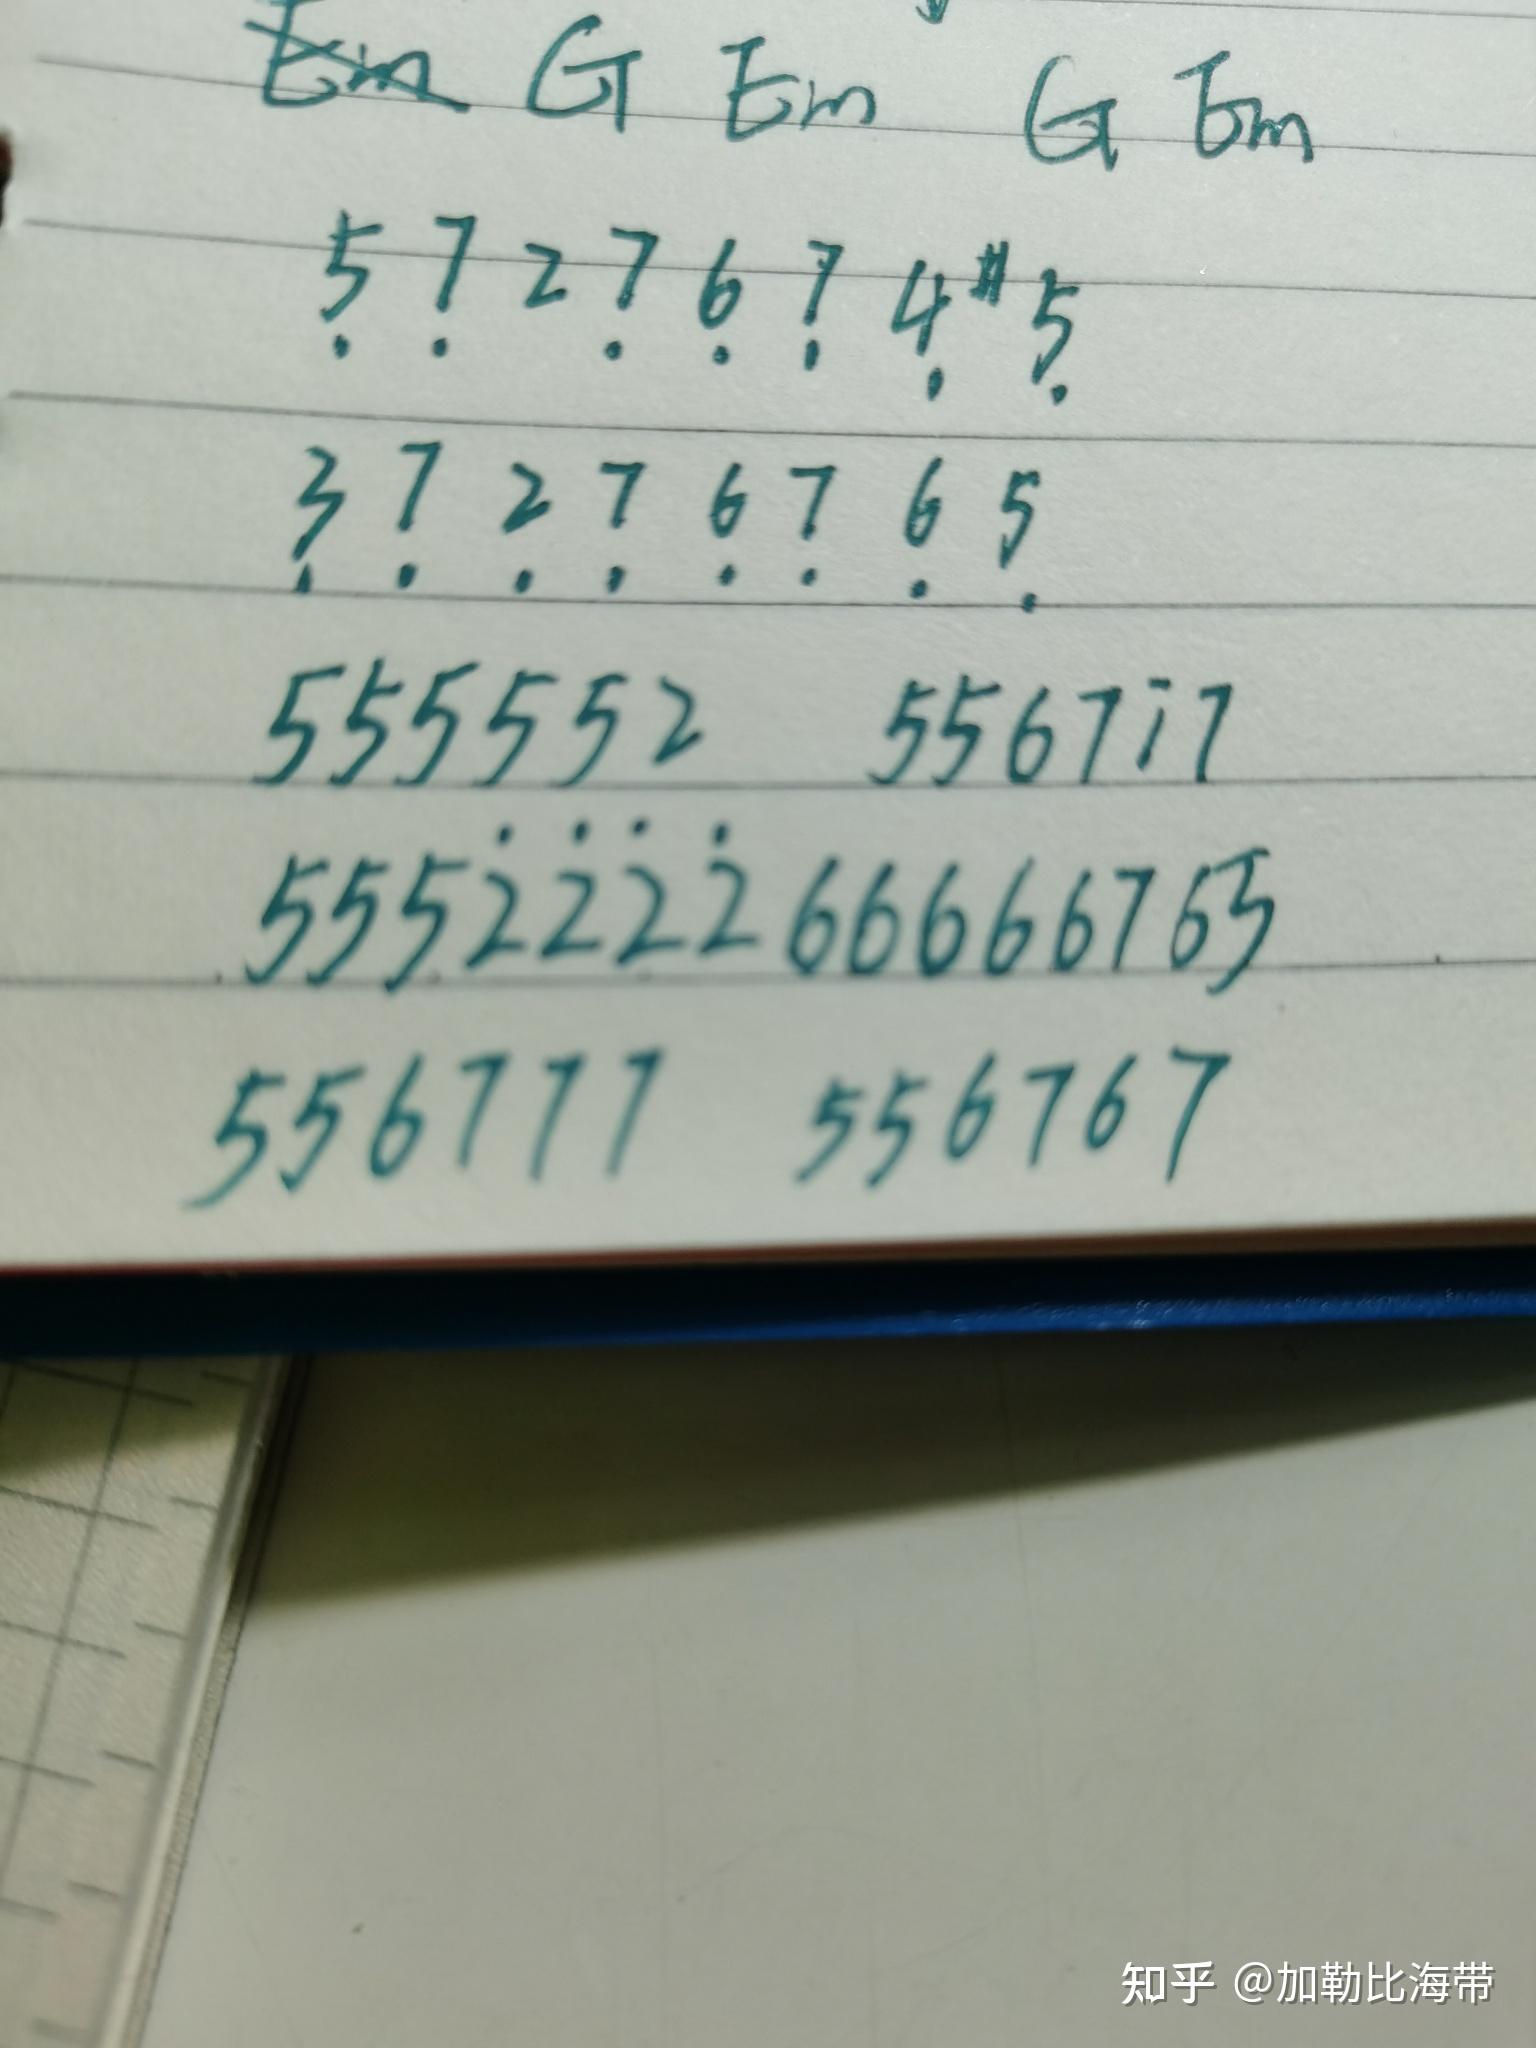 Em G Em G Em
5̣ 7̣ 2 7̣ 6̣ 7̣ 4̣# 5̣
3̣ 7̣ 2̣ 7̣ 6̣ 7̣ 6̣ 5̣
555552 5567i7
5552̇2̇2̇2̇66666765
556777 556767
知乎 @加勒比海带